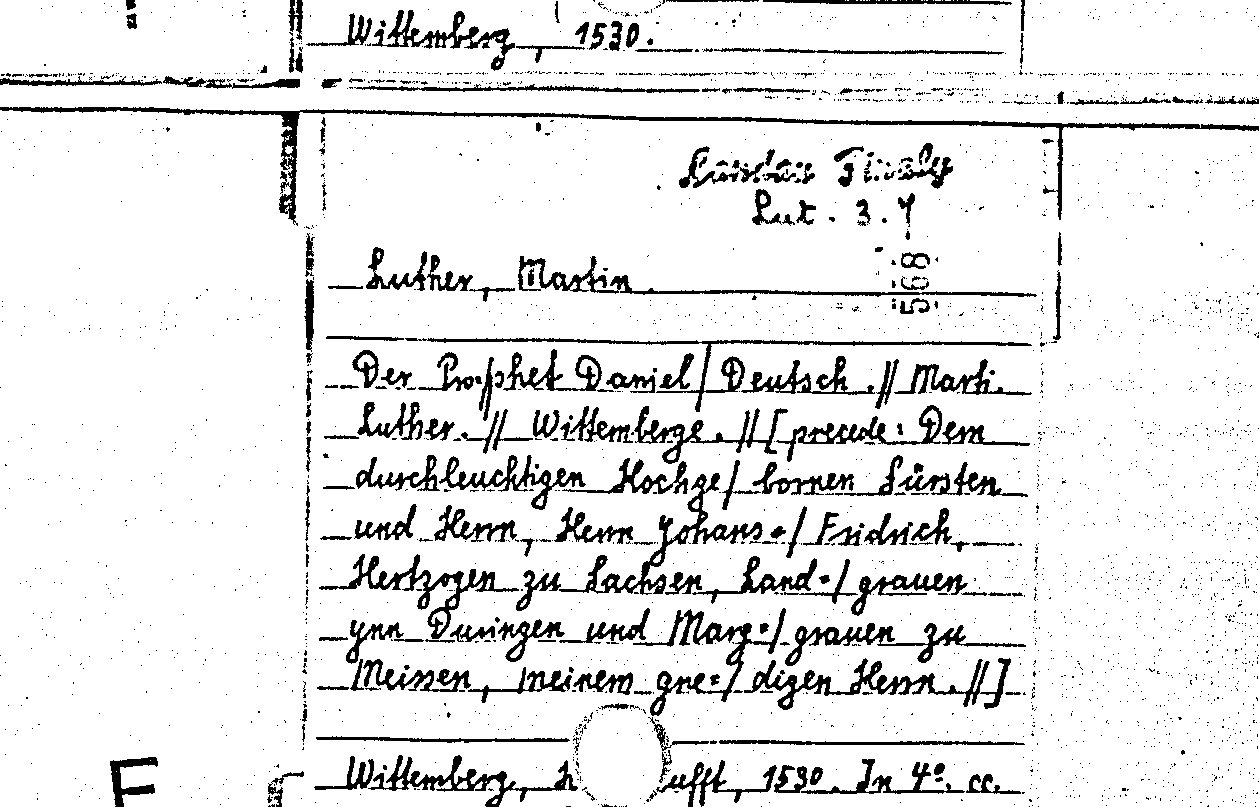 Wittemberg, 1530.
Landau Finaly
Lut. 3.7
568
Luther, Martin
Der Pro-//phet Daniel/ Deutsch.// Marti.
Luther.// Wittemberge.// [precede: Dem
durchleuchtigen Hochge/ bornen Fürsten
und Herrn, Herrn Johans=/ Fridrich,
Hertzogen zu Sachsen, Land=/ grauen
ynn Duringen und Marg=/ grauen zu
Meissen, meinem gne=/ digen Herrn.//]
Wittemberg, ufft, 1530. In 4º. cc.
E